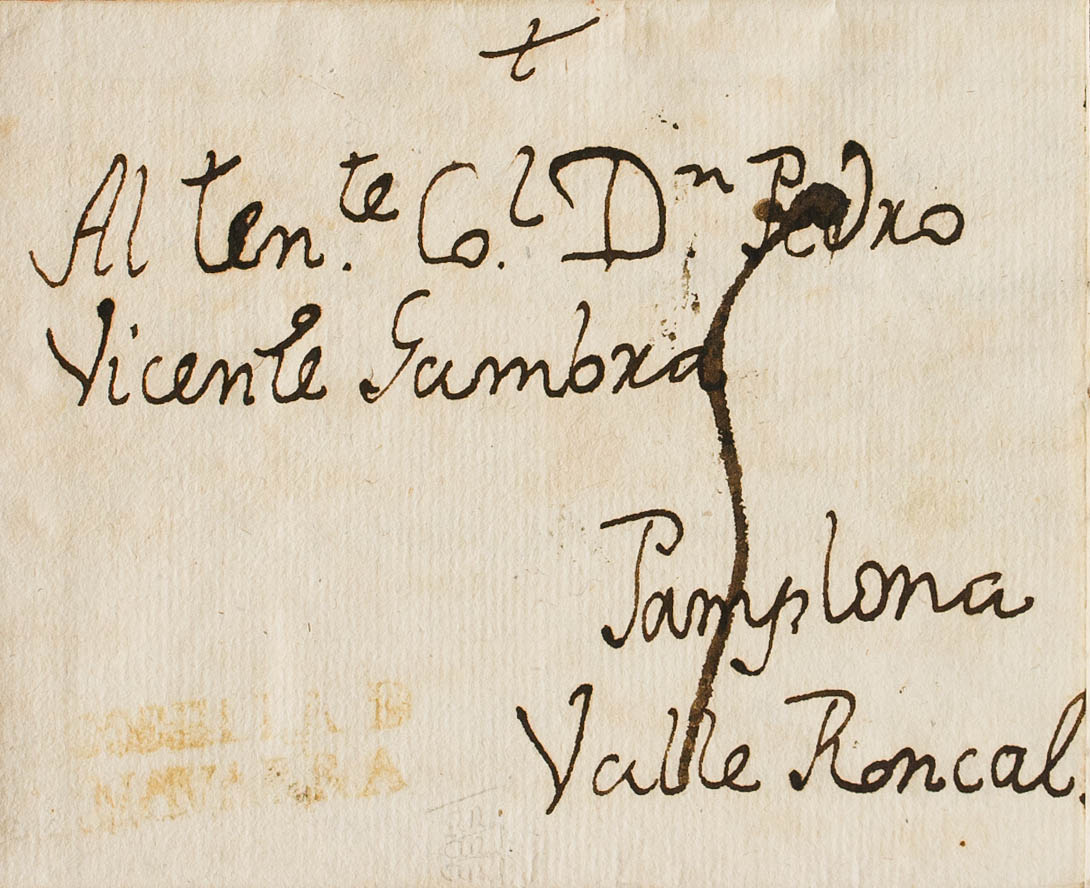 Al Ten.te Col. Dn Pedro
Vicente Gambra
Pamplona
Valle Roncal.